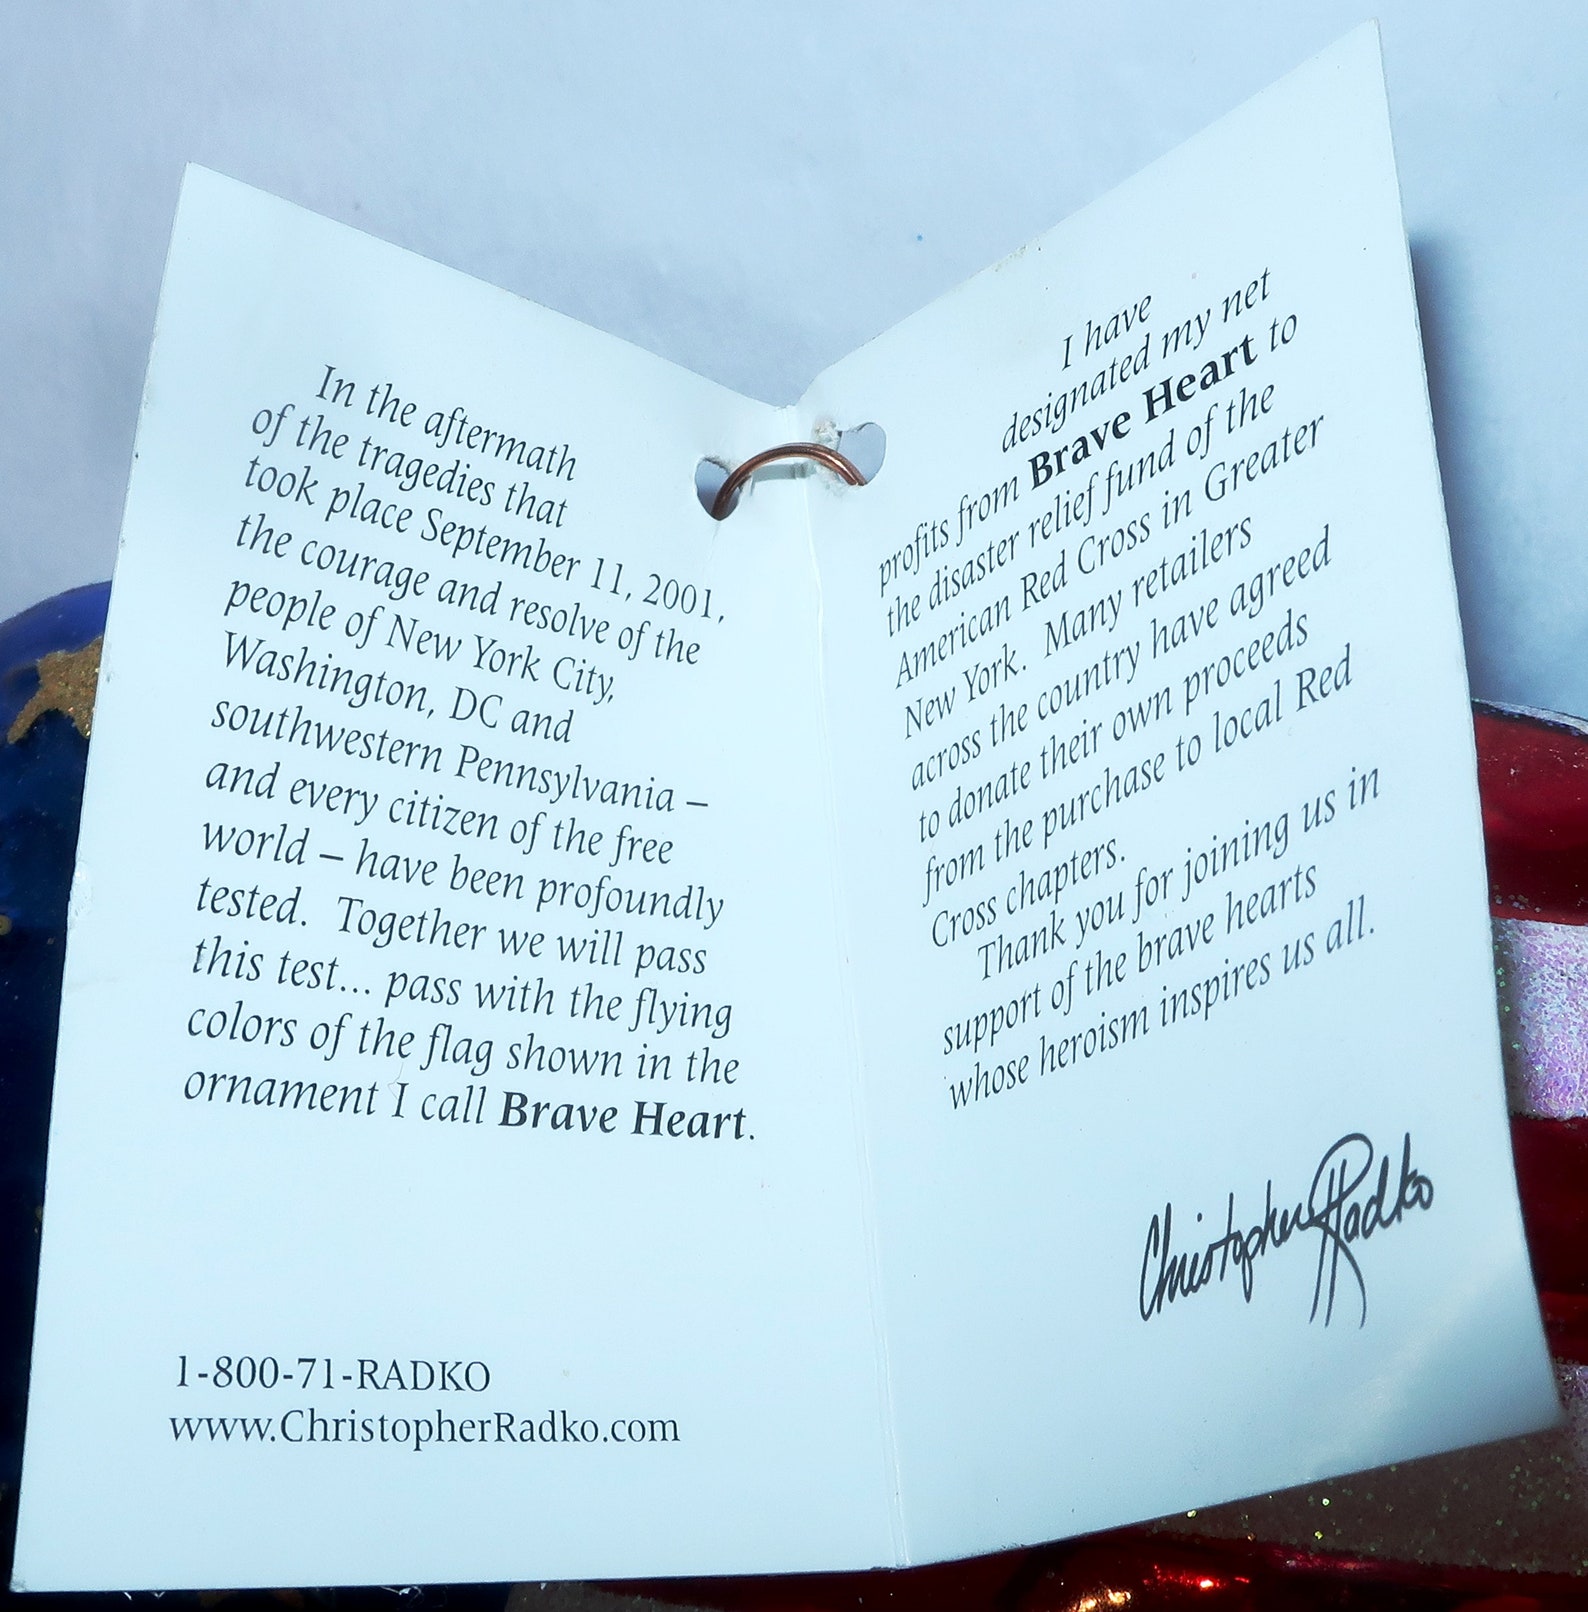 In the aftermath
of the tragedies that
took place September 11, 2001,
the courage and resolve of the
people of New York City,
Washington, DC and
southwestern Pennsylvania –
and every citizen of the free
world – have been profoundly
tested.  Together we will pass
this test... pass with the flying
colors of the flag shown in the
ornament I call Brave Heart.
1-800-71-RADKO
www.ChristopherRadko.com
I have
designated my net
profits from Brave Heart to
the disaster relief fund of the
American Red Cross in Greater
New York.  Many retailers
across the country have agreed
to donate their own proceeds
from the purchase to local Red
Cross chapters.
Thank you for joining us in
support of the brave hearts
whose heroism inspires us all.
Christopher Radko